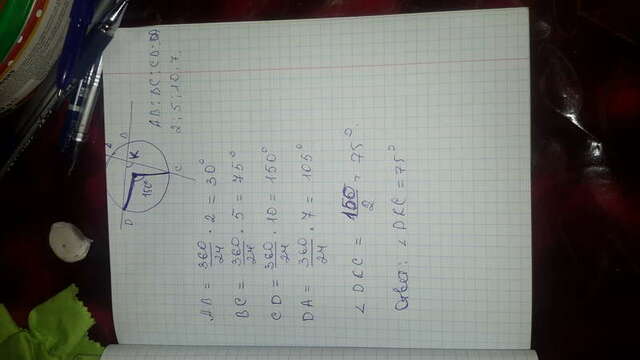 AB : BC : CD : DA
2 : 5 : 10 : 7.
B
A
K
150°
D
C
AB = 360/24 · 2 = 30°
BC = 360/24 · 5 = 75°
CD = 360/24 · 10 = 150°
DA = 360/24 · 7 = 105°
∠ DKC = 150/2 = 75°.
Ответ: ∠ DKC = 75°